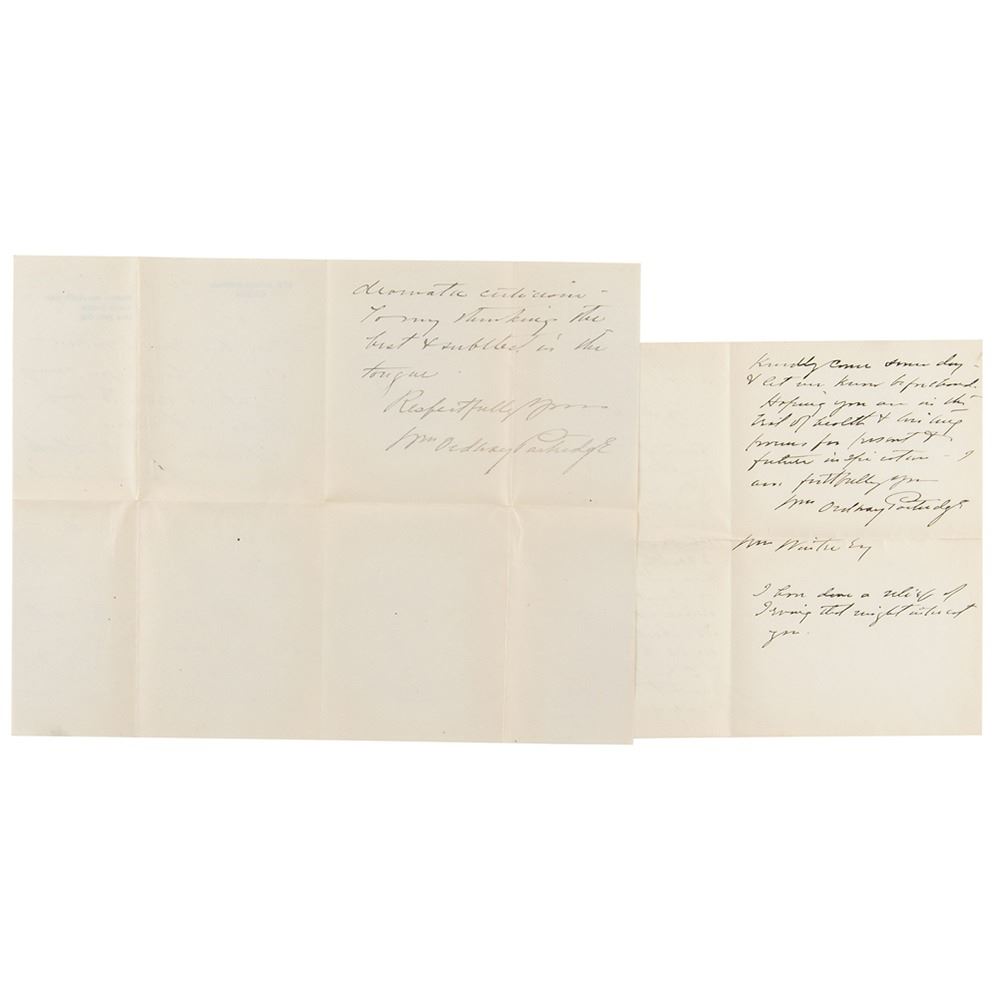 dramatic criticism -
To my thinking the
best & subtlest in the
tongue.
Respectfully yours
Wm Ordway Partridge
Kindly come some day -
& let me know beforehand.
Hoping you are in the
best of health & writing
poems for present &
future inspiration - I
am faithfully yrs
Wm Ordway Partridge
Wm Winter Esq
I have done a relief of
Irving that might interest
you.